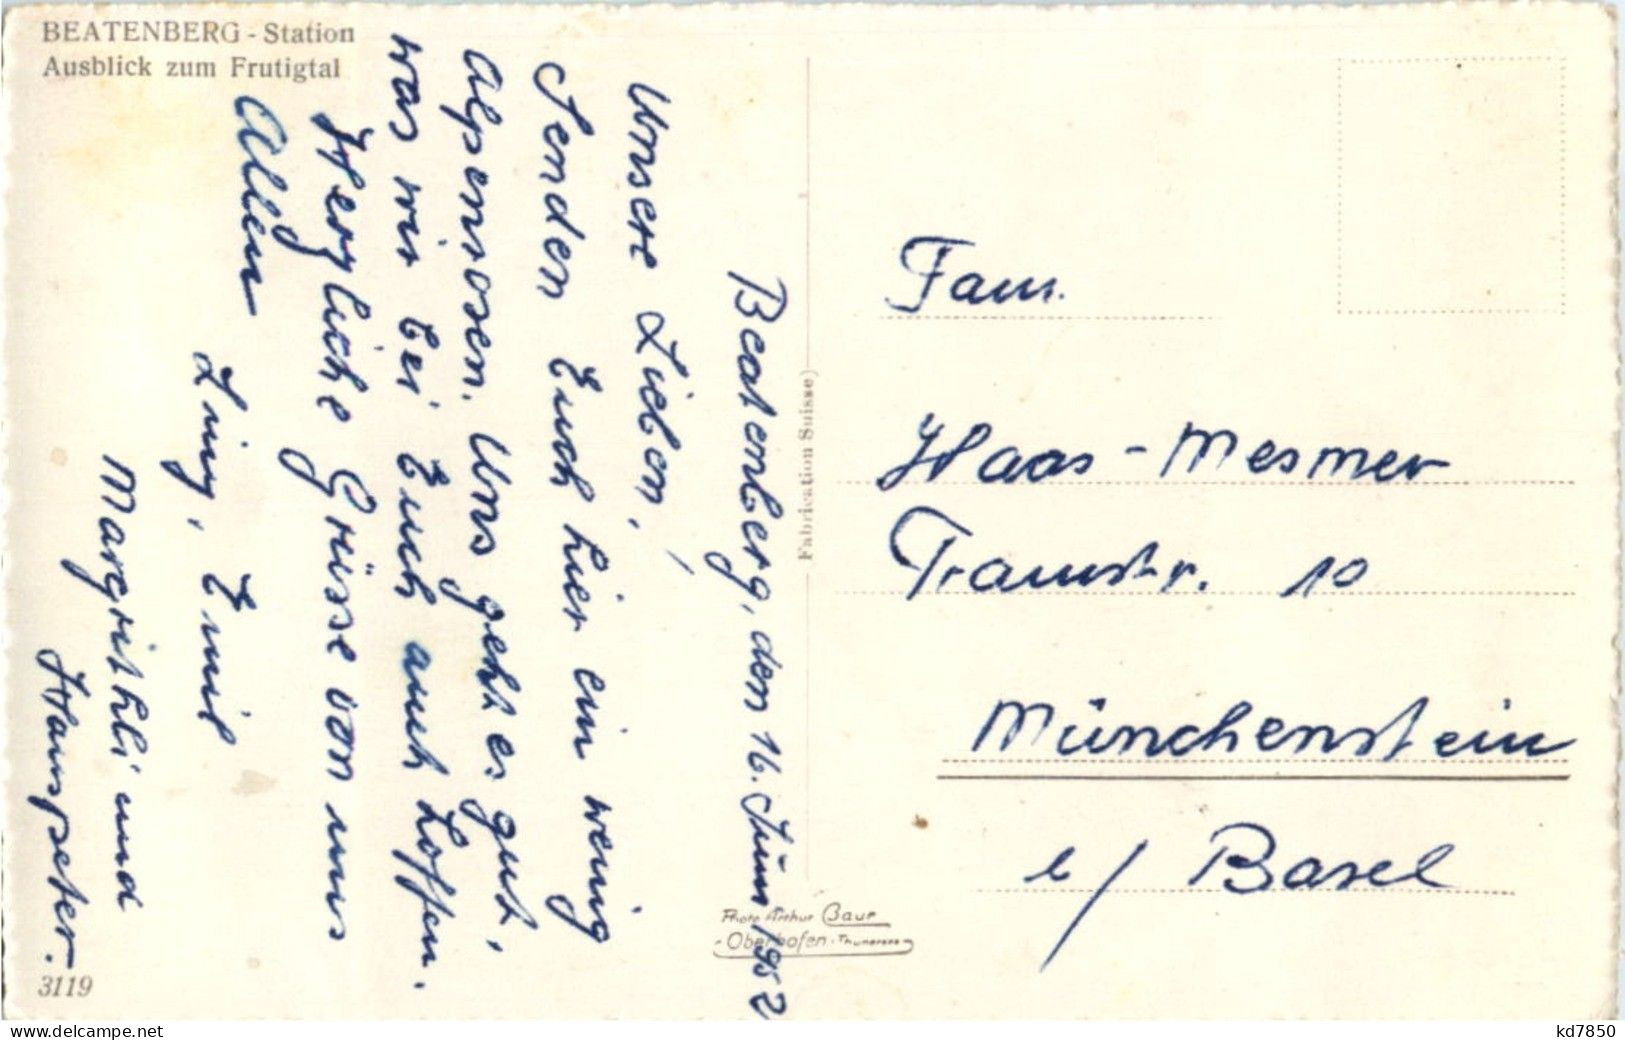 BEATENBERG - Station
Ausblick zum Frutigtal
Beatenberg, den 16. Juni 1952
Unsere Lieben,
Senden Euch hier ein wenig
Alpenrosen. Uns geht es gut,
was wir bei Euch auch hoffen.
Herzliche Grüsse von uns
Allen
Liny, Emil
Margrithli und
Hanspeter.
3119
Fabrication Suisse)
Photo Arthur Baur
Oberhofen - Thunersee
Fam.
Haas - Mesmer
Tramstr. 10
Münchenstein
b/ Basel
www.delcampe.net
kd7850